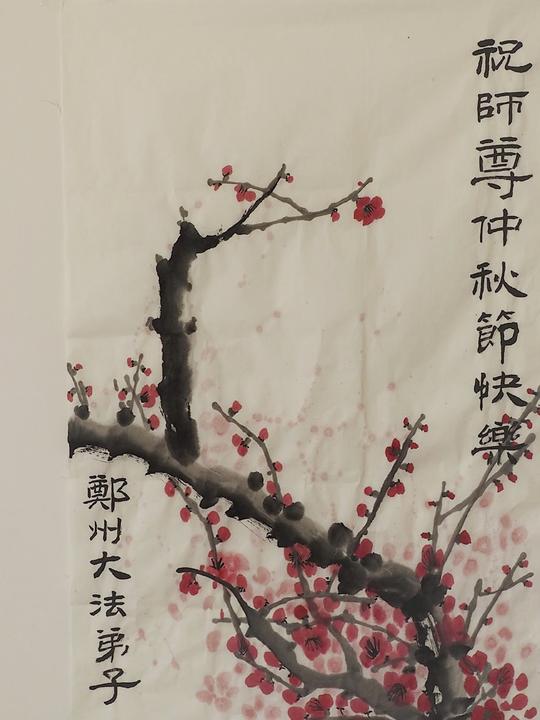 祝師尊仲秋節快樂
鄭州大法弟子